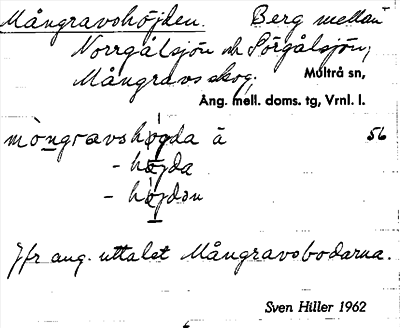 Mångravshöjden. Berg mellan
Norrgålsjön och Sörgålsjön,
Mångravs skog. Multrå sn,
Ång. mell. doms. tg, Vrnl. l.
mòngravshøgda ä 56
- højda
- højdən
Jfr ang. uttalet Mångravsbodarna.
Sven Hiller 1962